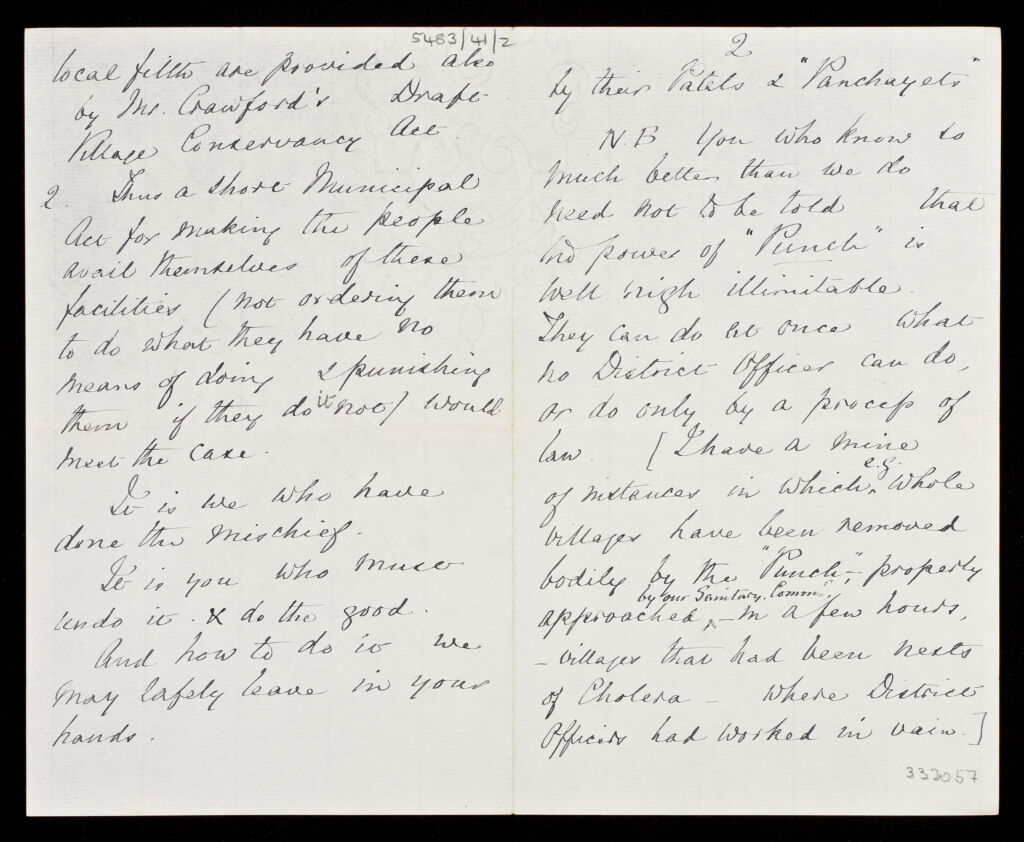 5483/41/2
local filth are provided also
by Mr. Crawford's Draft
Village Conservancy Act.
2. Thus a short Municipal
Act for making the people
avail themselves of these
facilities (not ordering them
to do what they have no
means of doing & punishing
them if they do it not) would
meet the case.
It is we who have
done the mischief.
It is you who must
undo it. & do the good.
And how to do it we
may safely leave in your
hands.
2
by their Patels & "Panchayets"
N.B. You who know so
much better than we do
need not to be told that
power of "Punch" is
well nigh illimitable.
They can do at once what
no District Officer can do,
or do only by a process of
law. [I have a mine
e.g.
of instances in which, whole
villages have been removed
bodily by the "Punch", - properly
by our Sanitary. Commr.
approached, - in a few hours,
- villages that had been nests
of Cholera - where District
Officers had worked in vain.]
332057